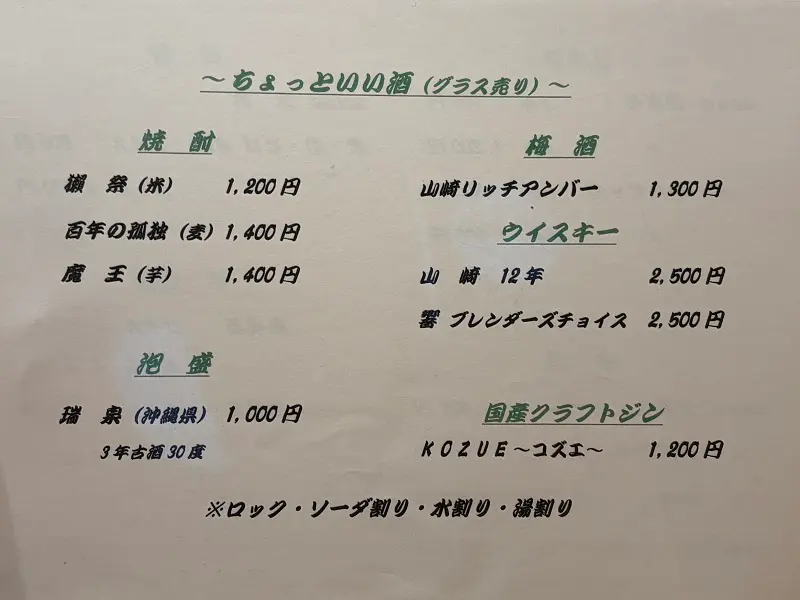 ～ちょっといい酒（グラス売り）～
焼　酎
獺　祭（米）　1,200円
百年の孤独（麦）1,400円
魔　王（芋）　1,400円
泡　盛
瑞　泉（沖縄県）　1,000円
3年古酒30度
梅　酒
山崎リッチアンバー　1,300円
ウイスキー
山　崎　12年　2,500円
響 ブレンダーズチョイス　2,500円
国産クラフトジン
ＫＯＺＵＥ～コズエ～　1,200円
※ロック・ソーダ割り・水割り・湯割り